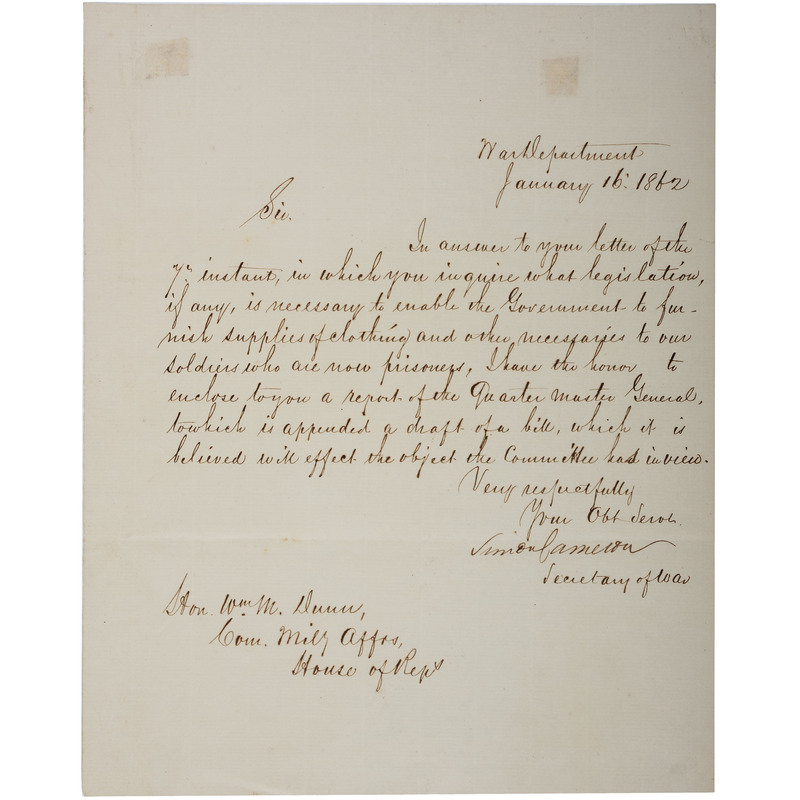 War Department
January 16. 1862
Sir.
In answer to your letter of the
7th instant, in which you inquire what legislation,
if any, is necessary to enable the Government to fur-
nish supplies of clothing and other necessaries to our
soldiers who are now prisoners, I have the honor to
enclose to you a report of the Quarter Master General,
to which is appended a draft of a bill, which it is
believed will effect the object the Committee has in view.
Very respectfully
Your Obt Servt.
Simon Cameron
Secretary of War
Hon. Wm M. Dunn,
Com. Mily Affrs,
House of Reps